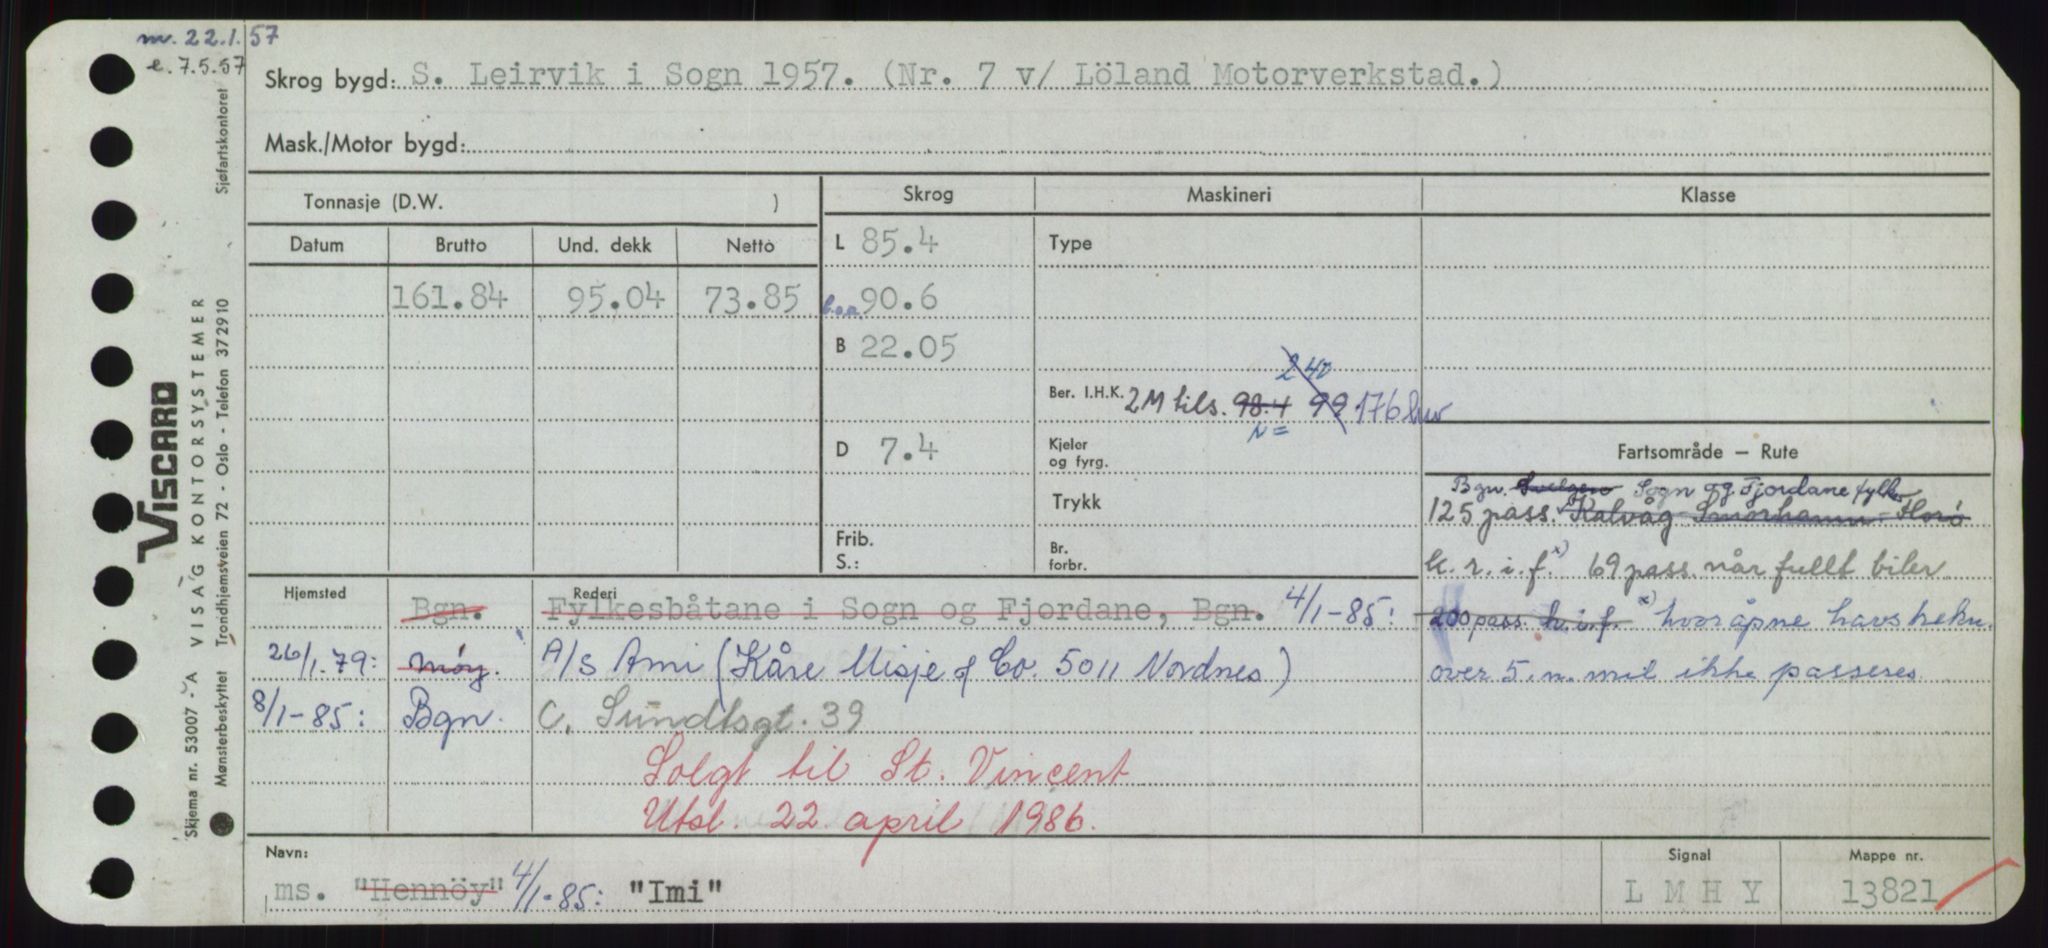 m. 22.1.57
e. 7.5.57
Skrog bygd: S. Leirvik i Sogn 1957. (Nr. 7 v/ Löland Motorverkstad.)
Mask./Motor bygd:
Tonnasje (D.W. )
Skrog
Maskineri
Klasse
Datum Brutto Und. dekk Netto
L 85.4
Type
161.84 95.04 73.85
90.6
B 22.05
240
Ber. I.H.K. 2M tils. 98.4 99 176
N =
D 7.4
Kjeler og fyrg.
Fartsområde — Rute
Trykk
Bgn. Sogn og Fjordane fylke
125 pass. Kalvåg - Smörhamn - Florö
Frib.
S.:
Br. forbr.
k. r. i. f. x) 69 pass. når fullt biler
Hjemsted
Rederi
Bgn. Fylkesbåtane i Sogn og Fjordane, Bgn. 4/1-85:
200 pass. h.i.f. x) hvor åpne havstrekn.
26/1.79: Möy. A/S Ami (Kåre Misje & Co. 5011 Nordnes)
over 5. n. mil ikke passeres
8/1-85: Bgn. C. Sundtsgt. 39
Solgt til St. Vincent
Utsl. 22. april 1986.
Navn:
ms. "Hennöy" 4/1-85: "Imi"
Signal
L M H Y
Mappe nr.
13821
VISCARD
Skjema nr. 53007 - A VISAG KONTORSYSTEMER
Mønsterbeskyttet Trondhjemsveien 72 - Oslo - Telefon 372910 Sjøfartskontoret